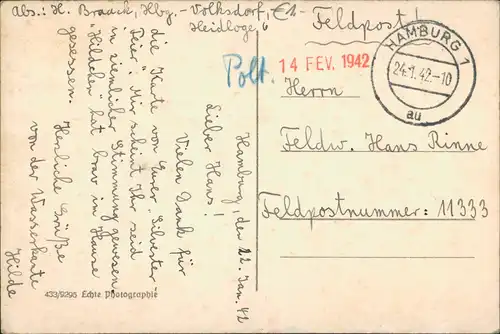 Abs.: H. Braack, Hbg.-Volksdorf,
Heidloge, 6
Feldpost!
HAMBURG 1
24.1.42.-10
au
14 FEV. 1942
Herrn
Feldw. Hans Rinne
Feldpostnummer: 11333
Hamburg, den 22. Jan. 42
Lieber Hans!
Vielen Dank für
die Karte von Eurer „Silvester-
Feier". Mir scheint Ihr seid
in ziemlicher Stimmung gewesen
Hildchen hat brav in Hause
gesessen. Herzliche Grüße
von der Wasserkante
Hilde
433/9295 Echte Photographie